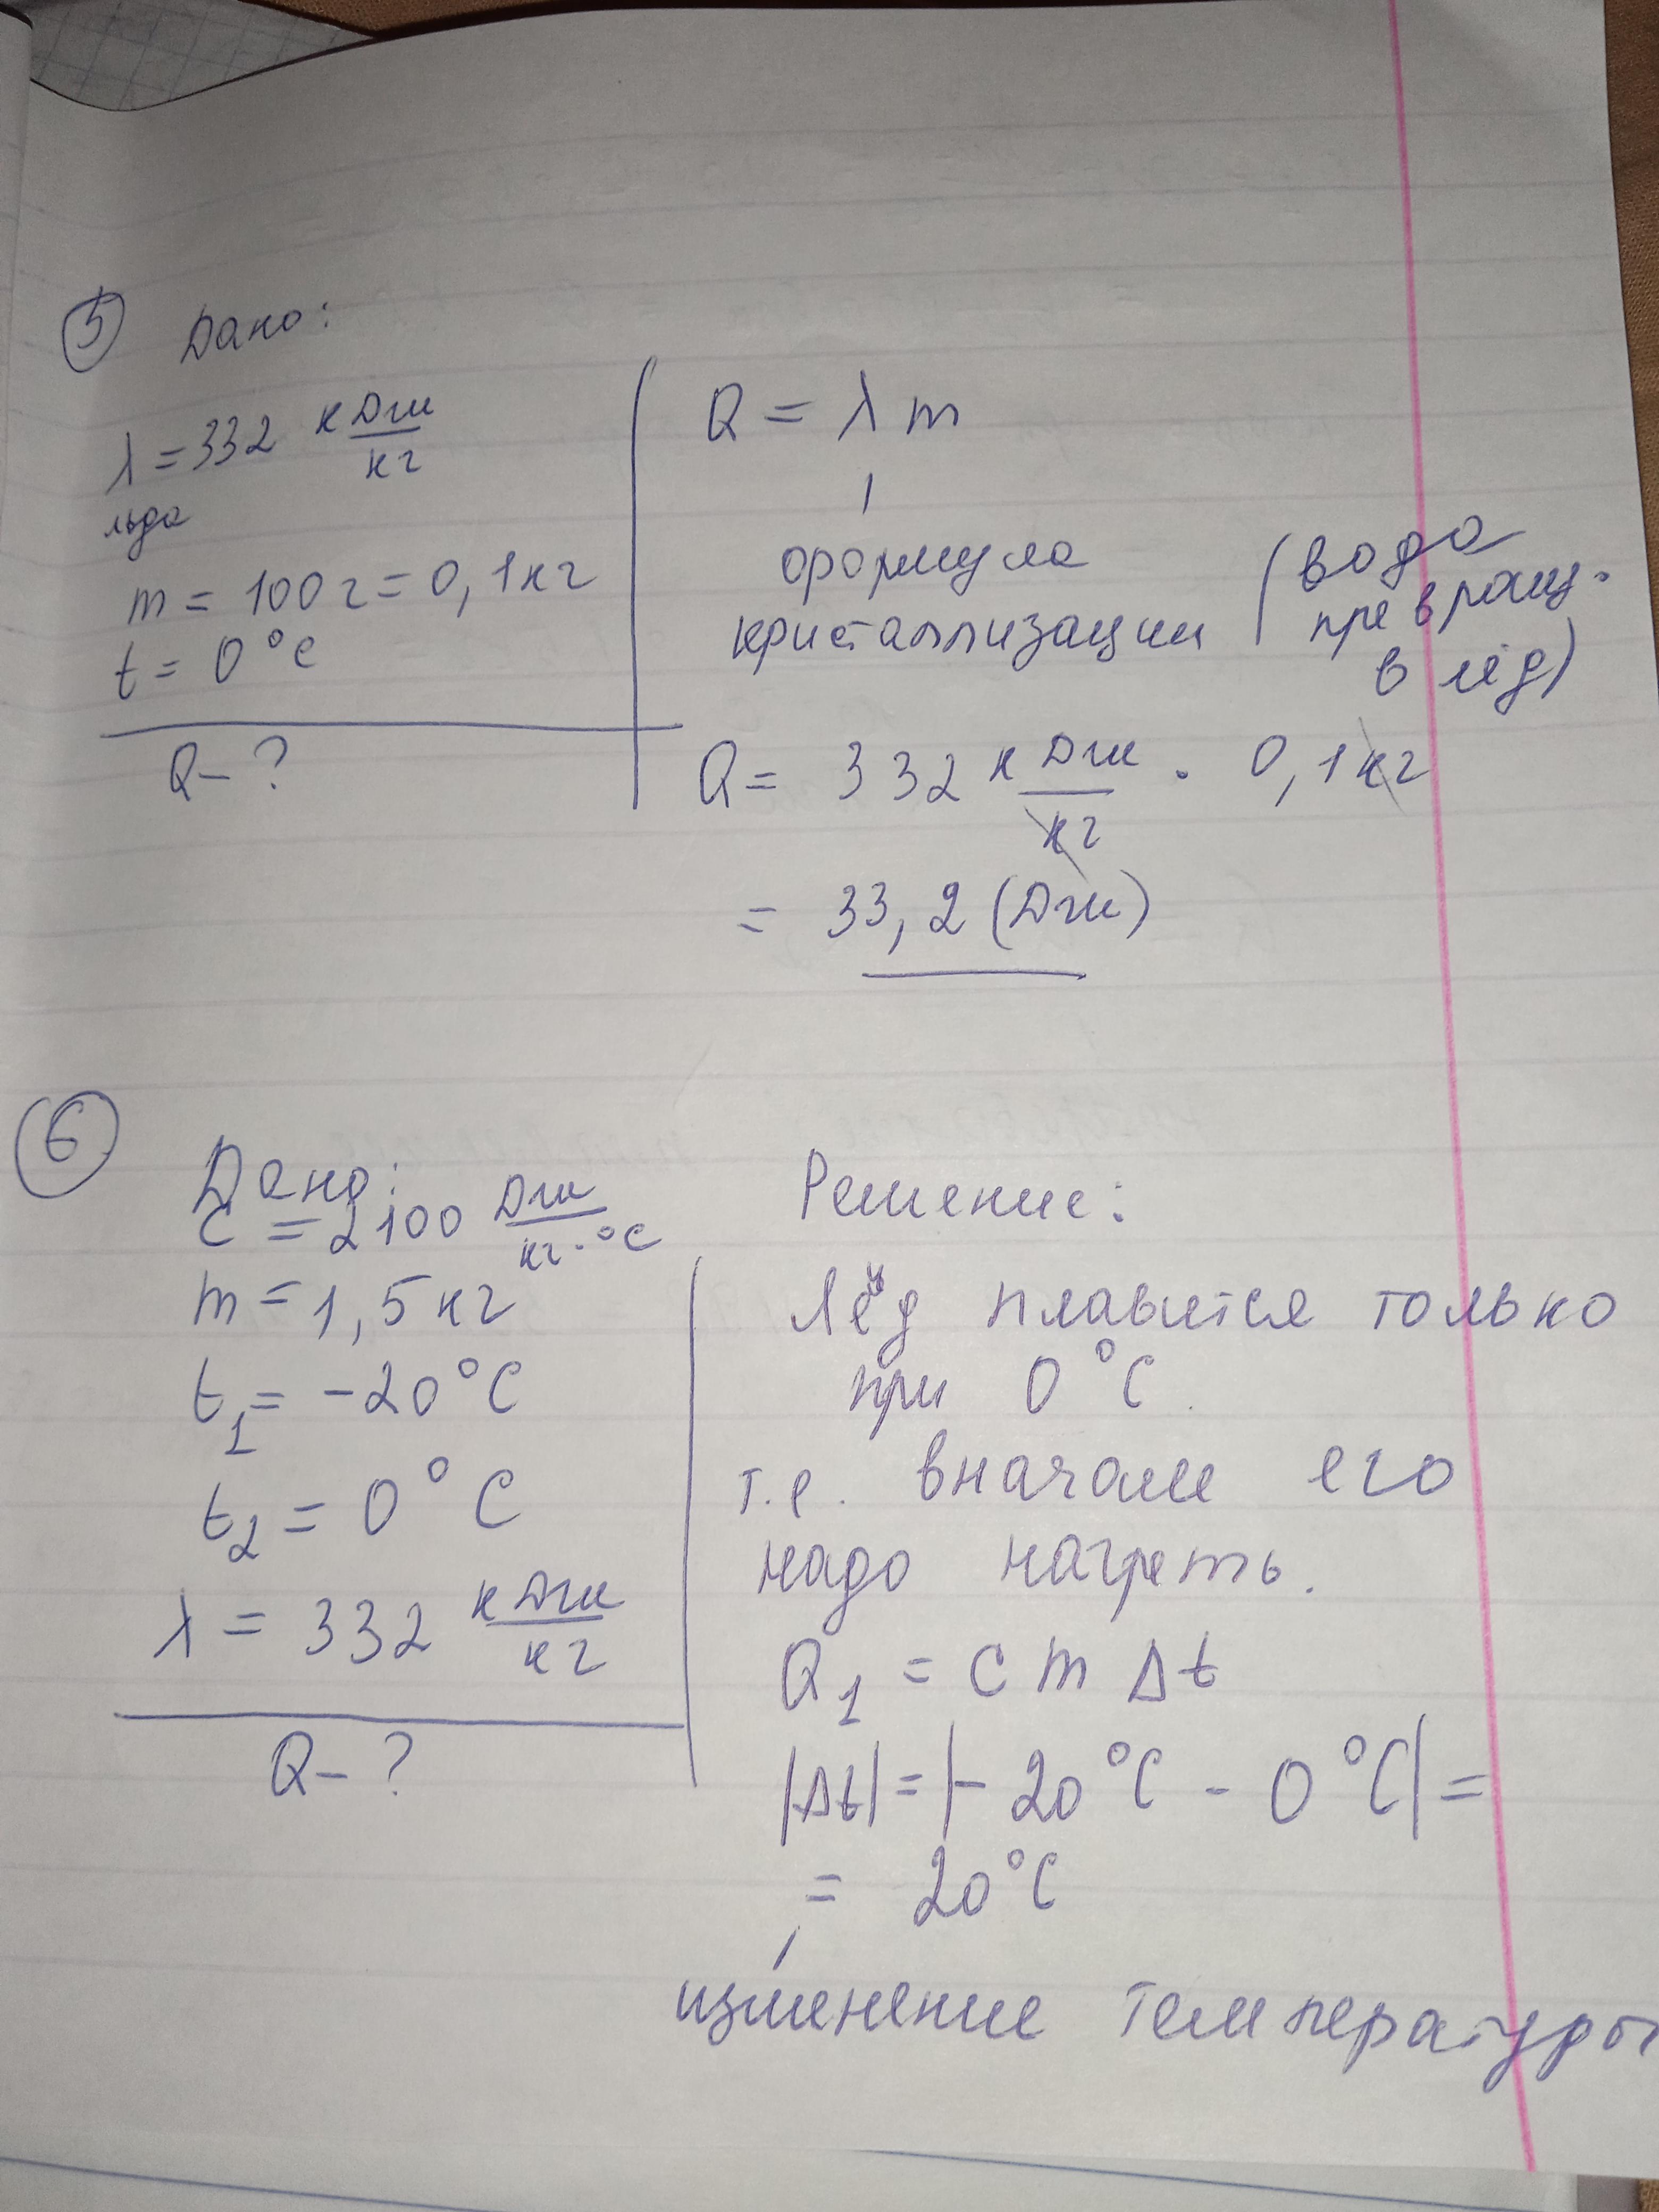 5 Дано:
λ = 332 кДж/кг
льда
m = 100 г = 0,1 кг
t = 0 °C
Q – ?
Q = λ m
формула
кристаллизации (вода
превращ.
в лёд)
Q = 332 кДж/кг · 0,1 кг
= 33,2 (Дж)
6
Дано:
c = 2100 Дж/кг·°C
m = 1,5 кг
t₁ = -20 °C
t₂ = 0 °C
λ = 332 кДж/кг
Q – ?
Решение:
Лёд плавится только
при 0 °C.
т.е. вначале его
надо нагреть.
Q₁ = c m Δt
|Δt| = |-20 °C - 0 °C| =
= 20 °C
изменение температуры